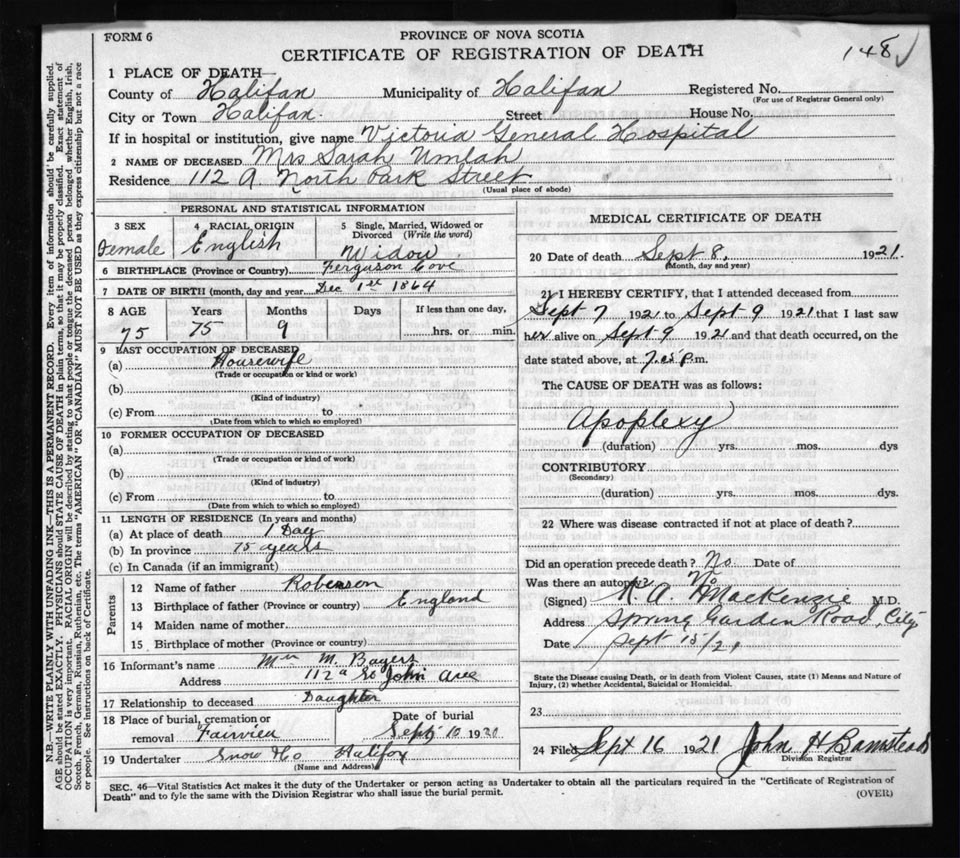 FORM 6
PROVINCE OF NOVA SCOTIA
CERTIFICATE OF REGISTRATION OF DEATH
148
1 PLACE OF DEATH
County of Halifax Municipality of Halifax Registered No.
(For use of Registrar General only)
City or Town Halifax. Street House No.
If in hospital or institution, give name Victoria General Hospital
2 NAME OF DECEASED Mrs Sarah Umlah
Residence 112 A. North Park Street
(Usual place of abode)
PERSONAL AND STATISTICAL INFORMATION
3 SEX
Female
4 RACIAL ORIGIN
English
5 Single, Married, Widowed or
Divorced (Write the word)
Widow
6 BIRTHPLACE (Province or Country) Ferguson Cove
7 DATE OF BIRTH (month, day and year) Dec 1st 1864
8 AGE Years Months Days If less than one day,
75 75 9 hrs. or min.
9 LAST OCCUPATION OF DECEASED
(a) Housewife
(Trade or occupation or kind or work)
(b)
(Kind of industry)
(c) From to
(Date from which to which so employed)
10 FORMER OCCUPATION OF DECEASED
(a)
(Trade or occupation or kind of work)
(b)
(Kind of industry)
(c) From to
(Date from which to which so employed)
11 LENGTH OF RESIDENCE (In years and months)
(a) At place of death 1 Day
(b) In province 75 years
(c) In Canada (if an immigrant)
Parents
12 Name of father Robinson
13 Birthplace of father (Province or country) England
14 Maiden name of mother
15 Birthplace of mother (Province or country)
16 Informant's name M.
Address 112 a St John Ave
17 Relationship to deceased Daughter
18 Place of burial, cremation or
removal Fairview
Date of burial
Sept 10 1920
19 Undertaker Snow Co Halifax
(Name and Address)
MEDICAL CERTIFICATE OF DEATH
20 Date of death Sept 8, 1921.
(Month, day and year)
21 I HEREBY CERTIFY, that I attended deceased from
Sept 7 1921 to Sept 9 1921 that I last saw
her alive on Sept 9 1921 and that death occurred, on the
date stated above, at p.m.
The CAUSE OF DEATH was as follows:
Apoplexy
(duration) yrs. mos. dys
CONTRIBUTORY
(Secondary)
(duration) yrs. mos. dys.
22 Where was disease contracted if not at place of death?
Did an operation precede death? No. Date of
Was there an autopsy No
(Signed) A. MacKenzie M.D.
Address Spring Garden Road, City
Date Sept 15/21
State the Disease causing Death, or in death from Violent Causes, state (1) Means and Nature of
Injury, (2) whether Accidental, Suicidal or Homicidal.
23
24 Filed Sept 16 1921 John H
Division Registrar
SEC. 46—Vital Statistics Act makes it the duty of the Undertaker or person acting as Undertaker to obtain all the particulars required in the "Certificate of Registration of
Death" and to fyle the same with the Division Registrar who shall issue the burial permit.
(OVER)
N.B.—WRITE PLAINLY WITH UNFADING INK—THIS IS A PERMANENT RECORD. Every item of information should be carefully supplied.
AGE should be stated EXACTLY. PHYSICIANS should STATE CAUSE OF DEATH in plain terms, so that it may be properly classified. Exact statement of
OCCUPATION is very important. RACIAL ORIGIN will be described by stating to what people or tongue the deceased person belonged whether English, Irish,
Scotch, French, German, Russian, Ruthenian, etc. The terms "AMERICAN" OR "CANADIAN" MUST NOT BE USED as they express citizenship but not a race
or people. See instructions on back of Certificate.